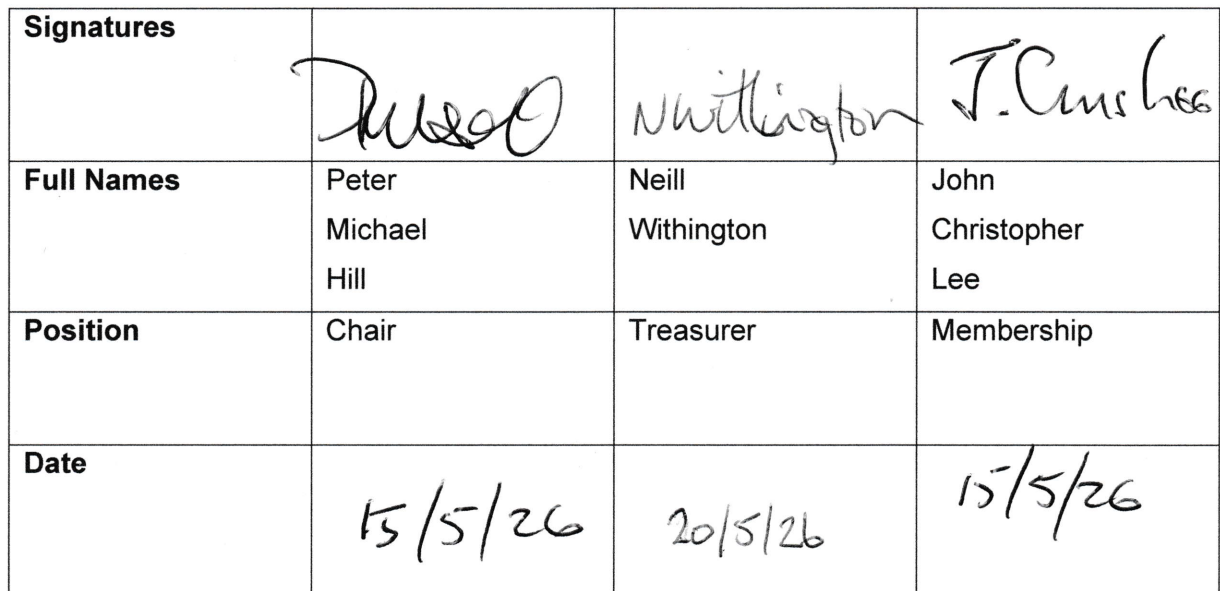 Signatures
NWithington J. Chris Lee
Full Names Peter Neill John
Michael Withington Christopher
Hill Lee
Position Chair Treasurer Membership
Date 15/5/26 20/5/26 15/5/26